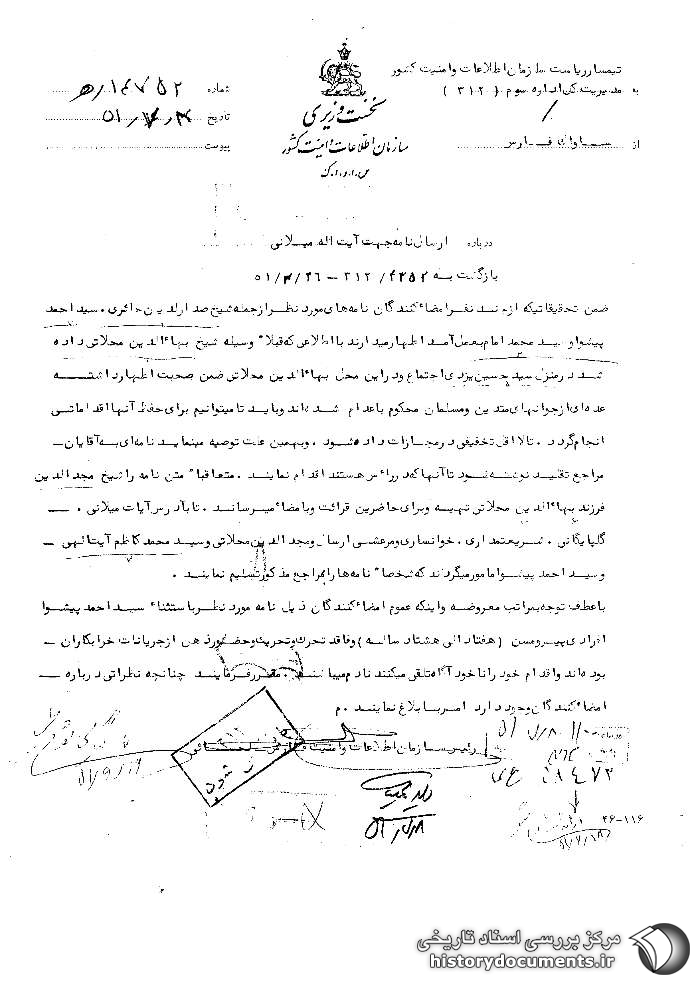 تیمسار ریاست سازمان اطلاعات و امنیت کشور
به مدیریت کل اداره سوم (۳۱۲)
از ساواک فارس
نخست وزیری
سازمان اطلاعات و امنیت کشور
س.ا.و.ا.ک
شماره ۱۴۷۵۲/ه
تاریخ
پیوست
درباره ارسال نامه جهت آیت اله میلانی
بازگشت به ۳۱۲/۴۲۵۲ – ۵۱/۳/۲۶
ضمن تحقیقاتیکه از چند نفر امضاء کنندگان نامه های مورد نظر از جمله شیخ صدرالدین حائری ، سید احمد
پیشوا و سید محمد امام بعمل آمد اظهار میدارند با اطلاعی که قبلا" وسیله شیخ بهاءالدین محلاتی داده
شد در منزل سید حسین یزدی اجتماع و در این محل بهاءالدین محلاتی ضمن صحبت اظهار داشته
عده ای از جوانهای متدین و مسلمان محکوم باعدام شده اند و باید تا میتوانیم برای حفظ آنها اقداماتی
انجام گردد . تا لااقل تخفیفی در مجازات داده شود . و بهمین علت توصیه مینماید نامه ای به آقایان –
مراجع تقلید نوشته شود تا آنها که در راس هستند اقدام نمایند . متعاقبا" متن نامه را شیخ مجدالدین
فرزند بهاءالدین محلاتی تهیه و برای حاضرین قرائت و بامضاء میرسانند . تا بآدرس آیات میلانی . —
گلپایگانی . شریعتمداری . خوانساری و مرعشی ارسال و مجدالدین محلاتی و سید محمد کاظم آیت الهی –
و سید احمد پیشوا مامور میگرداند که شخصا" نامه ها را بمراجع مذکور تسلیم نمایند .
با عطف توجه بمراتب معروضه و اینکه عموم امضاء کنندگان ذیل نامه مورد نظر باستثناء سید احمد پیشوا
افرادی پیر و مسن (هفتاد الی هشتاد ساله) و فاقد تحرک و تحریک و حضور ذهن از جریانات خرابکاران –
بوده اند و اقدام خود را ناخودآگاه تلقی میکنند نادم میباشند . مقرر فرمایند چنانچه نظراتی درباره —
امضاء کنندگان وجود دارد امر بابلاغ نمایند . م
رئیس سازمان اطلاعات و امنیت فارس
۲۸۴۷۲
۲۶-۱۱۶
مرکز بررسی اسناد تاریخی
historydocuments.ir